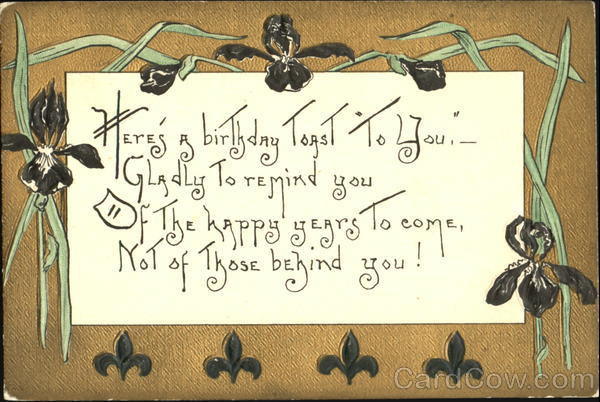 Here's a birthday Toast "To You,"—
Gladly To remind you
Of The happy years To come,
Not of Those behind you!
CardCow.com